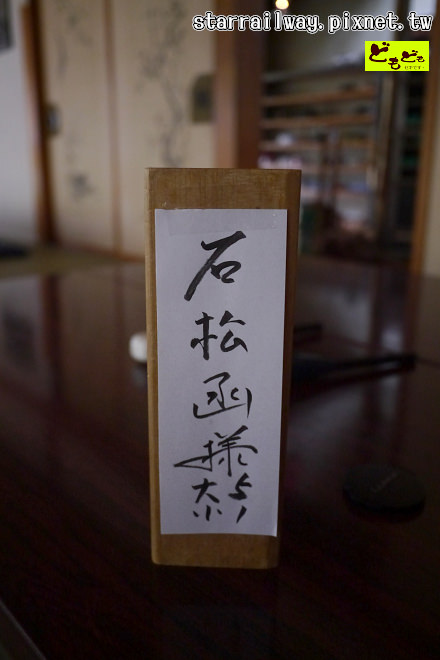 starrailway.pixnet.tw
どもども
石松函様
大5
小1